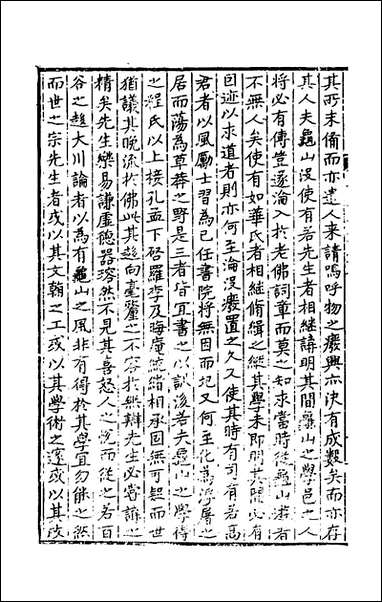 其所未備而亦遣人来請嗚呼物之癈興亦决有成数矣而亦存
其人夫龜山没使有若先生者相継講明其間龜山之學邑之人
将必有傳豈遂淪入於老佛詞章而莫之知求當時從龜山遊者
不無人矣使有如華氏者相継脩緝之縱其學未即明其間必有
因迹以求道者則亦何至淪沒癈置之久又使其時有司有若高
君者以風勵士習為已任書院将無因而圮又何至化為浮屠之
居而蕩為草莽之野是三者皆宜書之以訓後若夫龜山之學得
之程氏以上接孔孟下啓羅李及晦庵統緒相承固無可疑而世
猶議其晚流於佛此其趍向毫釐之不容於無辯先生必嘗講之
精矣先生樂易謙虚德器溶然不見其喜怒人之恱而從之若百
谷之趍大川論者以為有龜山之風非有得於其學宜勿能之然
而世之宗先生者或以其文翰之工或以其學術之邃或以其政